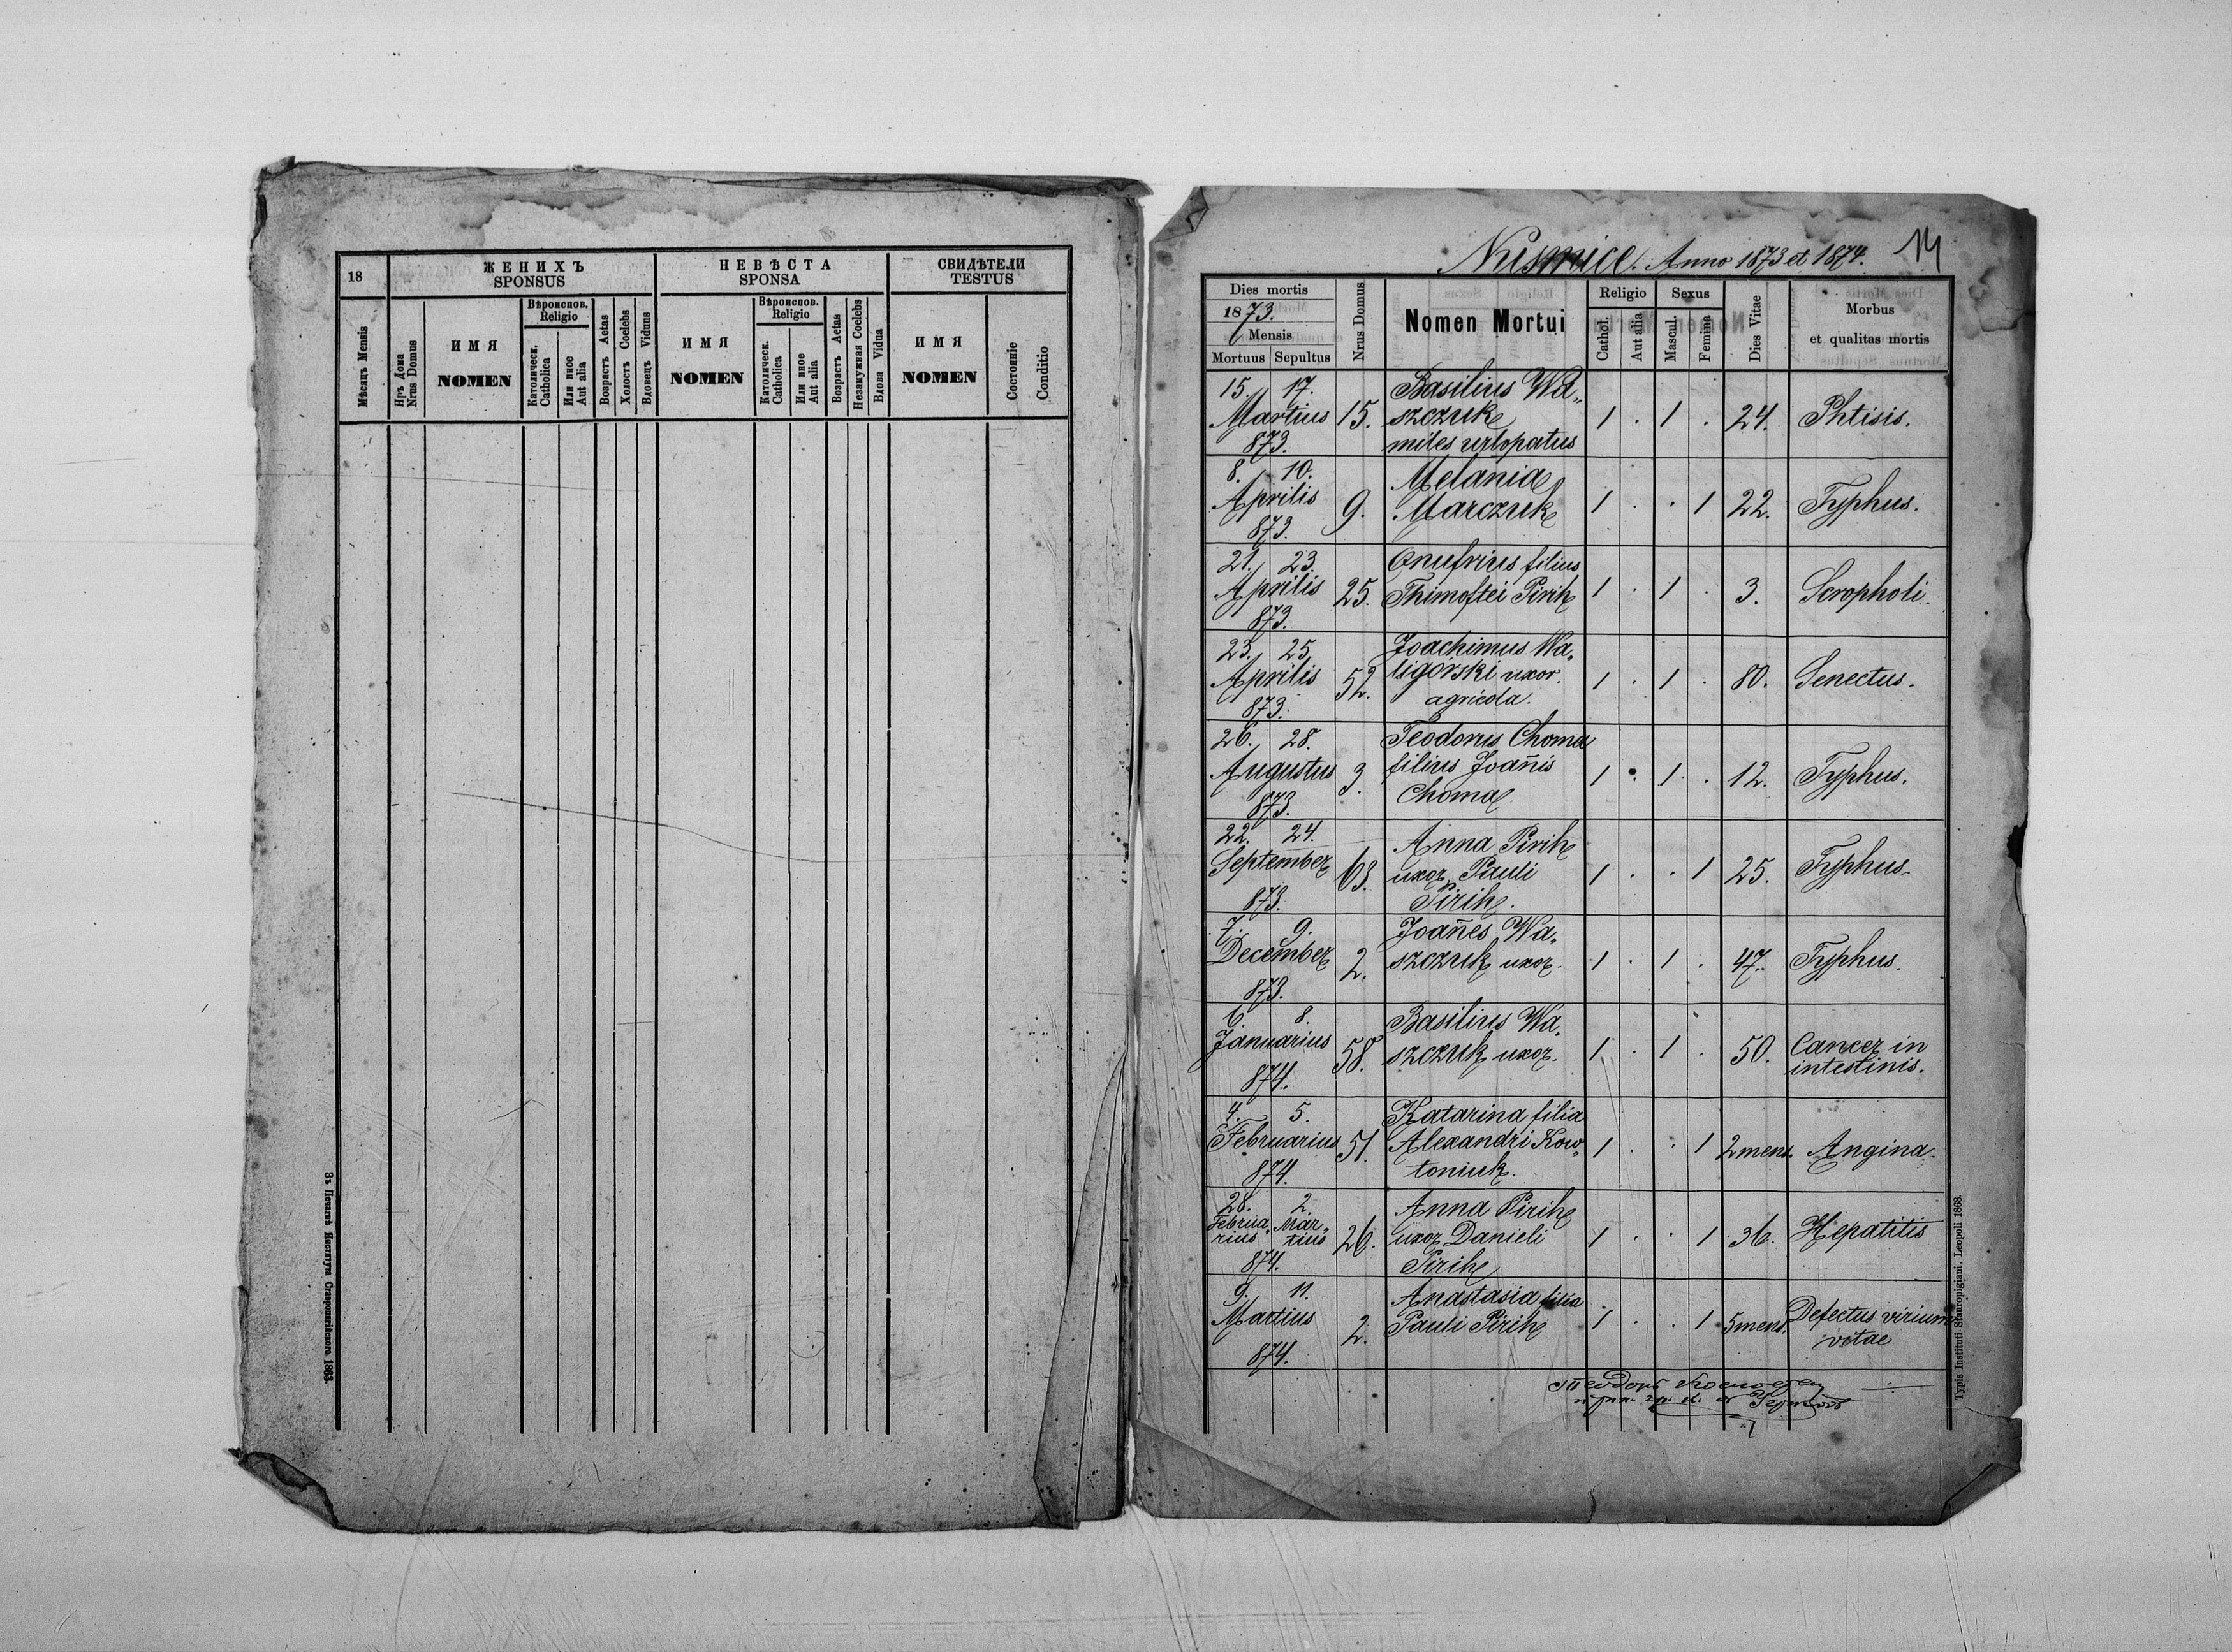 18
ЖЕНИХЪ
SPONSUS
НЕВѢСТА
SPONSA
СВИДѢТЕЛИ
TESTUS
Мѣсяцъ Mensis
Нръ Дома
Nrus Domus
ИМЯ
NOMEN
Вѣроиспов.
Religio
Католическ.
Catholica
Или иное
Aut alia
Возрастъ Aetas
Холостъ Coelebs
Вдовецъ Viduus
ИМЯ
NOMEN
Вѣроиспов.
Religio
Католическ.
Catholica
Или иное
Aut alia
Возрастъ Aetas
Незамужная Coelebs
Вдова Vidua
ИМЯ
NOMEN
Состояніе
Conditio
Зъ Печатнѣ Института Ставропигійского 1863.
Nusmice. Anno 1873 et 1874. 14
Dies mortis
1873.
Mensis
Mortuus Sepultus
Nrus Domus
Nomen Mortui
Religio
Cathol.
Aut alia
Sexus
Mascul.
Femina
Dies Vitae
Morbus
et qualitas mortis
15. 17. Basilius Wa„
Martius 15. szczuk 1 . 1 . 24. Phtisis.
873. miles urlopatus
8. 10. Melania
Aprilis 9. Marczuk 1 . . 1 22. Typhus.
873.
21. 23. Onufrius filius
Aprilis 25. Thimoftei Pirih 1 . 1 . 3. Scropholi.
873.
23. 25. Joachimus Wa„
Aprilis 52. ligorski uxor. 1 . 1 . 80. Senectus.
873. agricola.
26. 28. Teodorus Choma
Augustus 3. filius Joan̄is 1 . 1 . 12. Typhus.
873. Choma
22. 24. Anna Pirih
September 63. uxor Pauli 1 . . 1 25. Typhus.
873. Pirih.
7. 9. Joan̄es Wa„
December 2. szczuk uxor. 1 . 1 . 47. Typhus.
873.
6. 8. Basilius Wa„
Januarius 58. szczuk uxor. 1 . 1 . 50. Cancer in
874. intestinis.
4. 5. Katarina filia
Februarius 51. Alexandri Kow„ 1 . . 1 2 mens. Angina.
874. toniuk.
28. 2. Anna Pirih
Februa„ Mar„ 26. uxor Danieli 1 . . 1 36. Hepatitis
rius tius
874. Pirih
9. 11. Anastasia filia
Martius 2. Pauli Pirih 1 . . 1 5 mens. Defectus virium
874. vitae
Теодоръ
Typis Instituti Stauropigiani. Leopoli 1868.